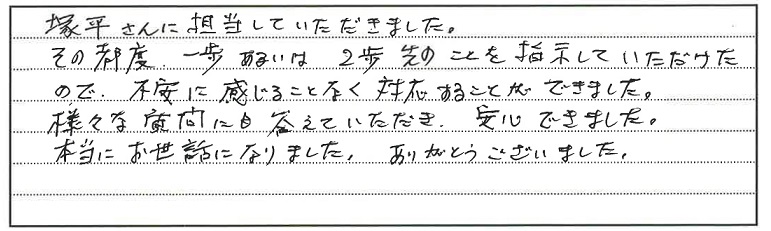 塚平さんに担当していただきました。
その都度、一歩あるいは2歩先のことを指示していただけた
ので、不安に感じることなく対応することができました。
様々な質問にも答えていただき、安心できました。
本当にお世話になりました。ありがとうございました。